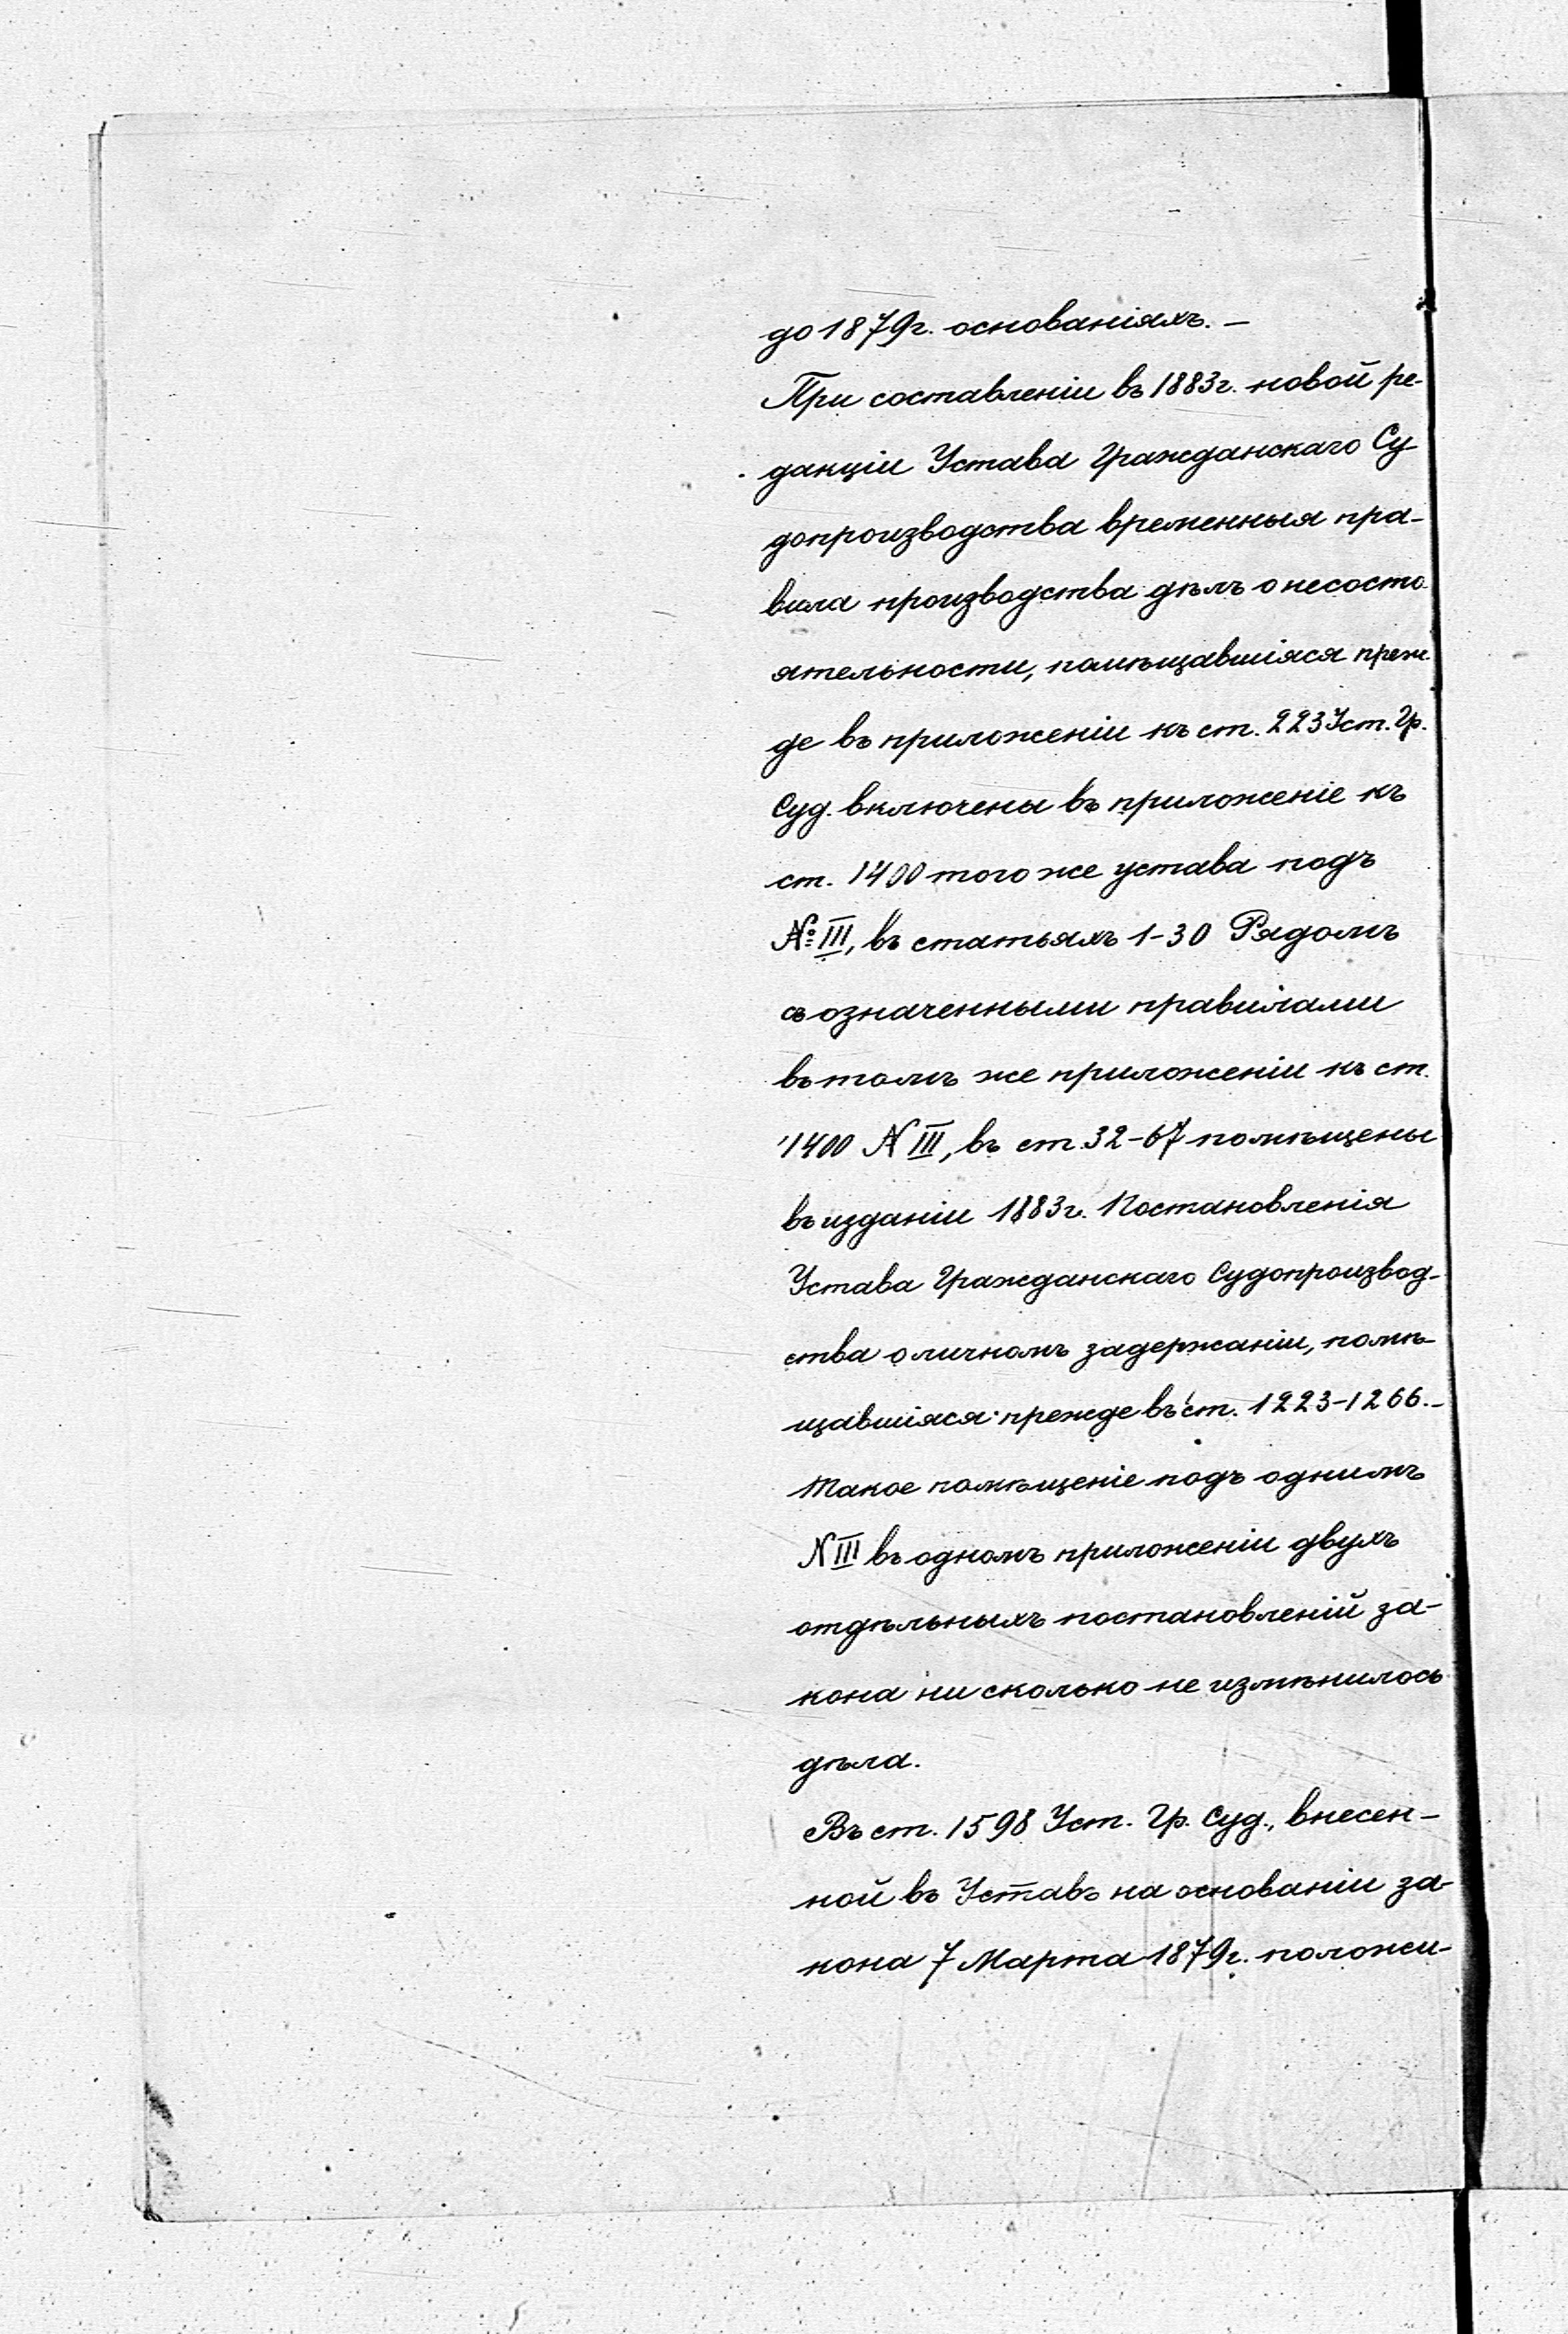 до 1879г. основаніяхъ. –
При составленіи въ 1883г. новой ре-
дакціи Устава Гражданскаго Су-
допроизводства временныя пра-
вила производства дѣлъ о несосто
ятельности, помѣщавшіяся преж-
де въ приложеніи къ ст. 223 Уст. Гр.
Суд. включены въ приложеніе къ
ст. 1400 того же устава подъ
№ III, въ статьяхъ 1-30 Рядомъ
съ означенными правилами
въ томъ же приложеніи къ ст.
1400 N III, въ ст. 32-67 помѣщены
въ изданіи 1883г. Постановленія
Устава Гражданскаго Судопроизвод-
ства о личномъ задержаніи, помѣ-
щавшіяся прежде въ ст. 1223-1266.-
Такое помѣщеніе подъ однимъ
N III въ одномъ приложеніи двухъ
отдѣльныхъ постановленій за-
кона ни сколько не измѣнилось
дѣла.
Въ ст. 1598 Уст. Гр. Суд., внесен-
ной въ Уставъ на основаніи за-
кона 7 Марта 1879г. положи-